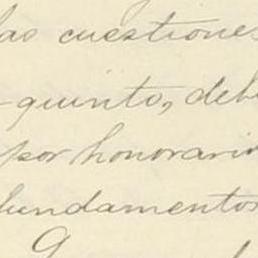 las cuestiones
quinto, deb
por honorario
fundamentos